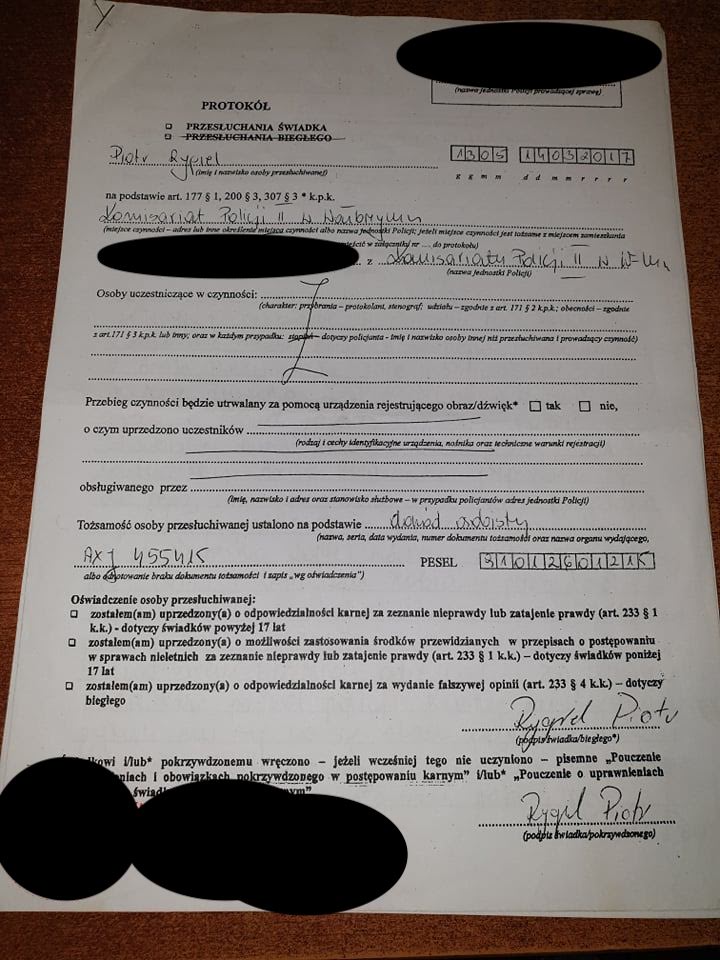 (nazwa jednostki Policji prowadzącej sprawę)
PROTOKÓŁ
PRZESŁUCHANIA ŚWIADKA
PRZESŁUCHANIA BIEGŁEGO
Piotr Rygiel
(imię i nazwisko osoby przesłuchiwanej)
1305 14032017
g g m m d d m m r r r r
na podstawie art. 177 § 1, 200 § 3, 307 § 3 * k.p.k.
Komisariat Policji II w Wałbrzychu
(miejsce czynności – adres lub inne określenie miejsca czynności albo nazwa jednostki Policji; jeżeli miejsce czynności jest tożsame z miejscem zamieszkania
w załączniku nr .... do protokołu)
z Komisariatu Policji II w W-chu
(nazwa jednostki Policji)
Osoby uczestniczące w czynności:
(charakter: przybrania – protokolant, stenograf; udziału – zgodnie z art. 171 § 2 k.p.k.; obecności – zgodnie
z art.171 § 3 k.p.k. lub inny; oraz w każdym przypadku: stopień – dotyczy policjanta - imię i nazwisko osoby innej niż przesłuchiwana i prowadzący czynność)
Przebieg czynności będzie utrwalany za pomocą urządzenia rejestrującego obraz/dźwięk* tak nie,
o czym uprzedzono uczestników
(rodzaj i cechy identyfikacyjne urządzenia, nośnika oraz techniczne warunki rejestracji)
obsługiwanego przez
(imię, nazwisko i adres oraz stanowisko służbowe – w przypadku policjantów adres jednostki Policji)
Tożsamość osoby przesłuchiwanej ustalono na podstawie dowód osobisty
(nazwa, seria, data wydania, numer dokumentu tożsamości oraz nazwa organu wydającego,
PESEL
albo odnotowanie braku dokumentu tożsamości i zapis „wg oświadczenia”)
Oświadczenie osoby przesłuchiwanej:
zostałem(am) uprzedzony(a) o odpowiedzialności karnej za zeznanie nieprawdy lub zatajenie prawdy (art. 233 § 1
k.k.) - dotyczy świadków powyżej 17 lat
zostałem(am) uprzedzony(a) o możliwości zastosowania środków przewidzianych w przepisach o postępowaniu
w sprawach nieletnich za zeznanie nieprawdy lub zatajenie prawdy (art. 233 § 1 k.k.) – dotyczy świadków poniżej
17 lat
zostałem(am) uprzedzony(a) o odpowiedzialności karnej za wydanie fałszywej opinii (art. 233 § 4 k.k.) – dotyczy
biegłego
Rygiel Piotr
(podpis świadka/biegłego*)
i/lub* pokrzywdzonemu wręczono – jeżeli wcześniej tego nie uczyniono – pisemne „Pouczenie
i obowiązkach pokrzywdzonego w postępowaniu karnym” i/lub* „Pouczenie o uprawnieniach
Rygiel Piotr
(podpis świadka/pokrzywdzonego)